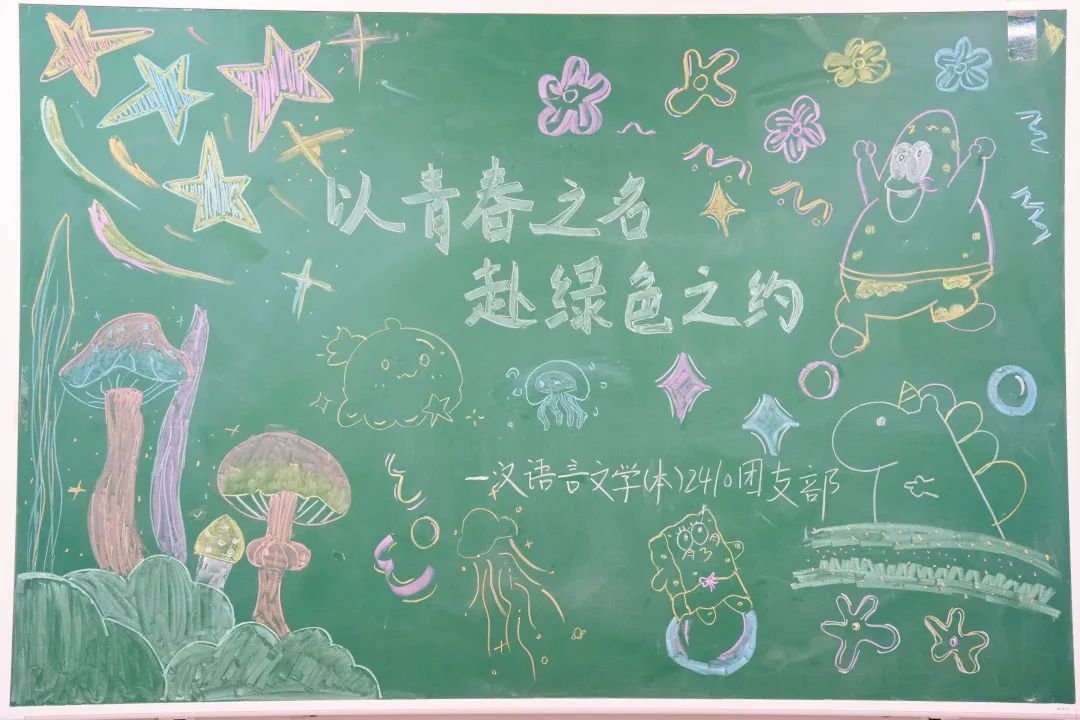 以青春之名
赴绿色之约
一汉语言文学(本)2410团支部